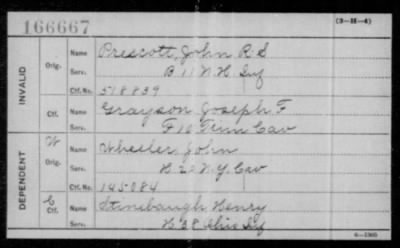 166667
(3-H-4)
INVALID
Orig. Name Prescott, John R. S
Serv. B 11 N. H. Inf
Ctf. No. 518839
Ctf. Name Grayson Joseph F
Serv. F 10 Tenn Cav
DEPENDENT
W Orig. Name Wheeler, John
Serv. H. 20 N.Y. Cav
Ctf. No. 145084
C Ctf. Name Stinebaugh Henry
Serv. Ohio Inf